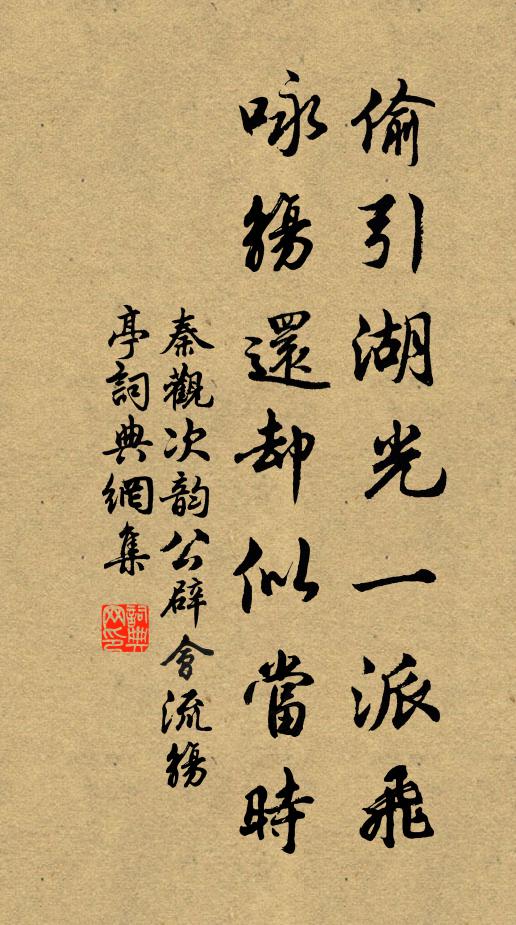 偷引湖光一派飛
咏觴還却似當時
秦觀次韵公辟會流觴
亭詞典網集
詞典網印